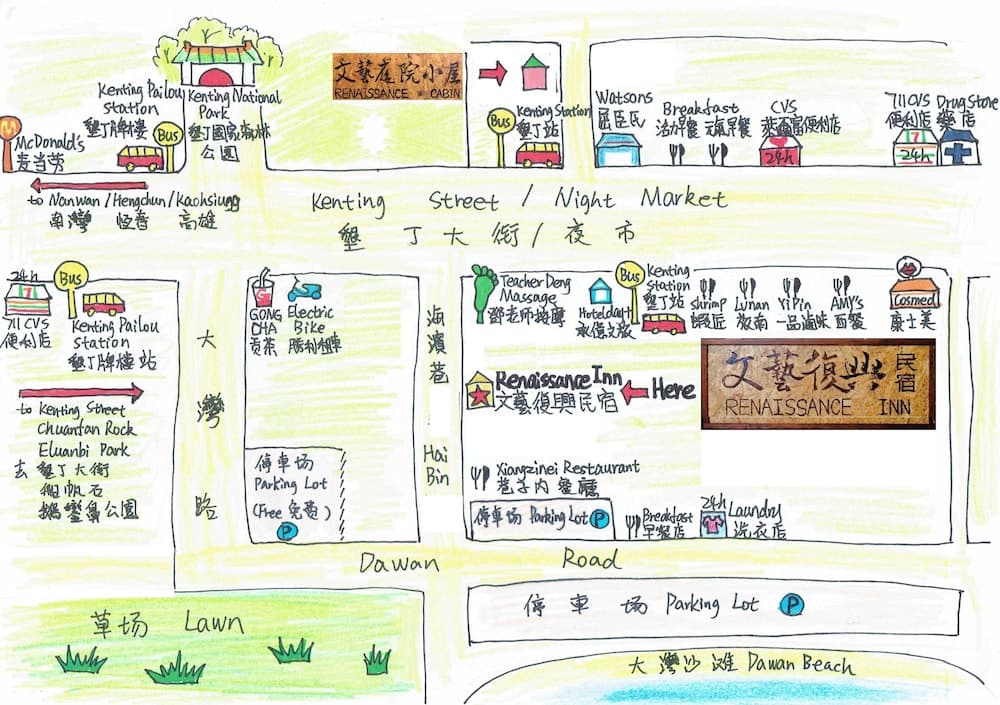 Kenting Pailou
station
墾丁牌樓
Bus
Kenting National
Park
墾丁國家森林
公園
McDonald's
麦当劳
to Nanwan/Hengchun/Kaohsiung
南灣 恆春 高雄
文藝庭院小屋
RENAISSANCE CABIN
Bus
Kenting Station
墾丁站
Watsons
屈臣氏
Breakfast
活力早餐 元氣早餐
CVS
萊爾富便利店
24h
711CVS
便利店
24h
Drug Store
藥店
Kenting Street / Night Market
墾丁大街/夜市
24h
711 CVS
便利店
Bus
Kenting Pailou
Station
墾丁牌樓站
to Kenting Street
Chuanfan Rock
Eluanbi Park
去墾丁大街
船帆石
鵝鑾鼻公園
大灣路
GONG
CHA
贡茶
Electric
Bike
勝利租車
停車场
Parking Lot
(Free 免费)
P
海濱巷
Hai
Bin
Teacher Deng
Massage
鄧老師按摩
Hotelday+
承億文旅
Bus
Kenting
Station
墾丁站
shrimp
蝦匠
Lunan
YiPin
一品滷味
AMY'S
西餐
Cosmed
康士美
Renaissance Inn
文藝復興民宿
Here
文藝復興民宿
RENAISSANCE INN
Xiangzinei Restaurant
巷子內餐廳
停車场 Parking Lot P
Breakfast
早餐店
24h
Laundry
洗衣店
Dawan Road
草场 Lawn
停車场 Parking Lot P
大灣沙滩 Dawan Beach